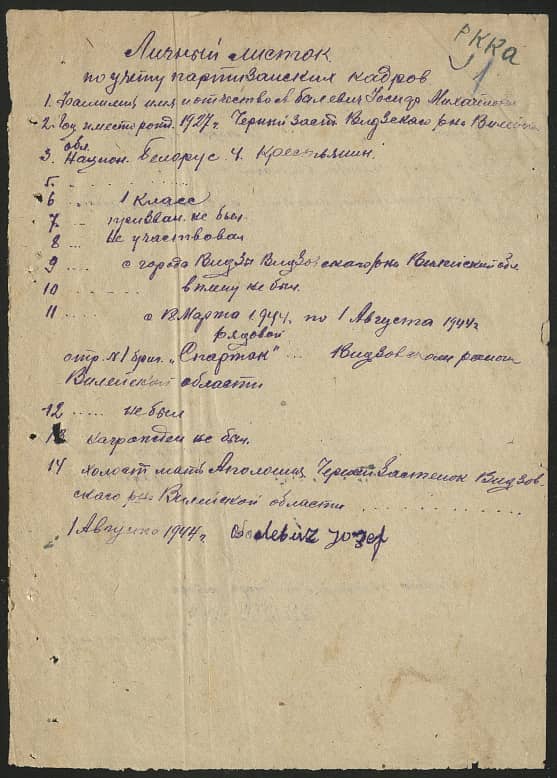 РККа
1
Личный листок
по учету партизанских кадров
1. Фамилия имя и отчество Балевич Иосиф Михайлович
2. Год и место рожд. 1927 г. Черный Заст. Видзского р-на Вилейск
обл.
3. Национ. Белорус 4. Крестьянин.
5. .....
6 ..... 1 класс
7 ..... призван. не был.
8 ---- Не участвовал
9 ..... с города Видзы Видзовского р-на Вилейский обл
10 ..... в плену не был.
11 ..... с Марта 1944. по 1 Августа 1944 г
рядовой
отр. N1 бриг. „Спартак" ... Видзовском районе
Вилейской области
12 ..... не был
13 награжден не был.
14 холост мать Аполония Черный Застенок Видзов-
ского р-на Вилейской области ..........
1 Августа 1944 г. Balewicz Jozef